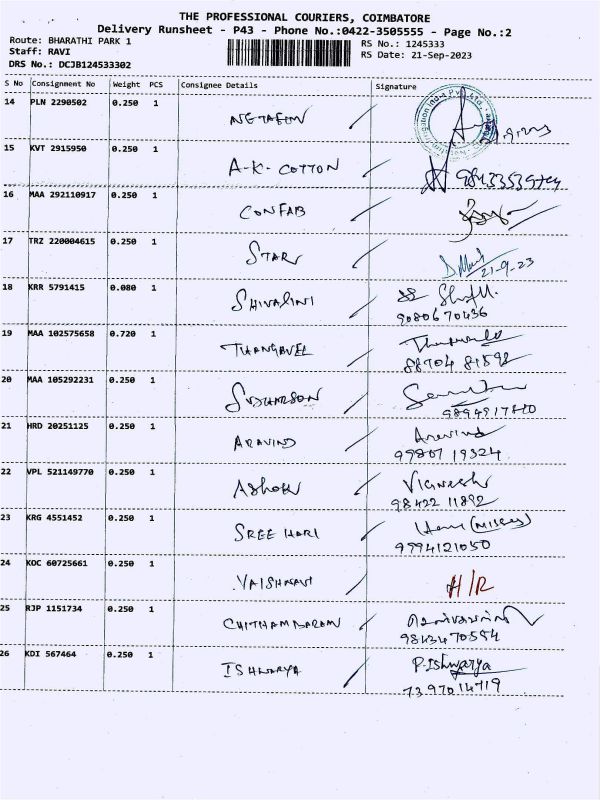 THE PROFESSIONAL COURIERS, COIMBATORE
Delivery Runsheet - P43 - Phone No.:0422-3505555 - Page No.:2
Route: BHARATHI PARK 1 RS No.: 1245333
Staff: RAVI RS Date: 21-Sep-2023
DRS No.: DCJB124533302
S No Consignment No Weight PCS Consignee Details Signature
14 PLN 2290502 0.250 1 NETAFIM
15 KVT 2915950 0.250 1 A-K- COTTON
16 MAA 292110917 0.250 1 CONFAB
17 TRZ 220004615 0.250 1 STAR
21-9-23
18 KRR 5791415 0.080 1 SHIVALINI
9080670436
19 MAA 102575658 0.720 1 THANGAVEL
88704 81598
20 MAA 105292231 0.250 1 SUDHARSON
21 HRD 20251125 0.250 1 ARAVIND Aravind
99807 19324
22 VPL 521149770 0.250 1 ASHOK Vigneesh
98422 11892
23 KRG 4551452 0.250 1 SREE HARI
9994121050
24 KOC 60725661 0.250 1 VAISHNAVI H/R
25 RJP 1151734 0.250 1 CHITHAMBARAM
9843470554
26 KDI 567464 0.250 1 ISHWARYA P.Ishwarya
7397014719